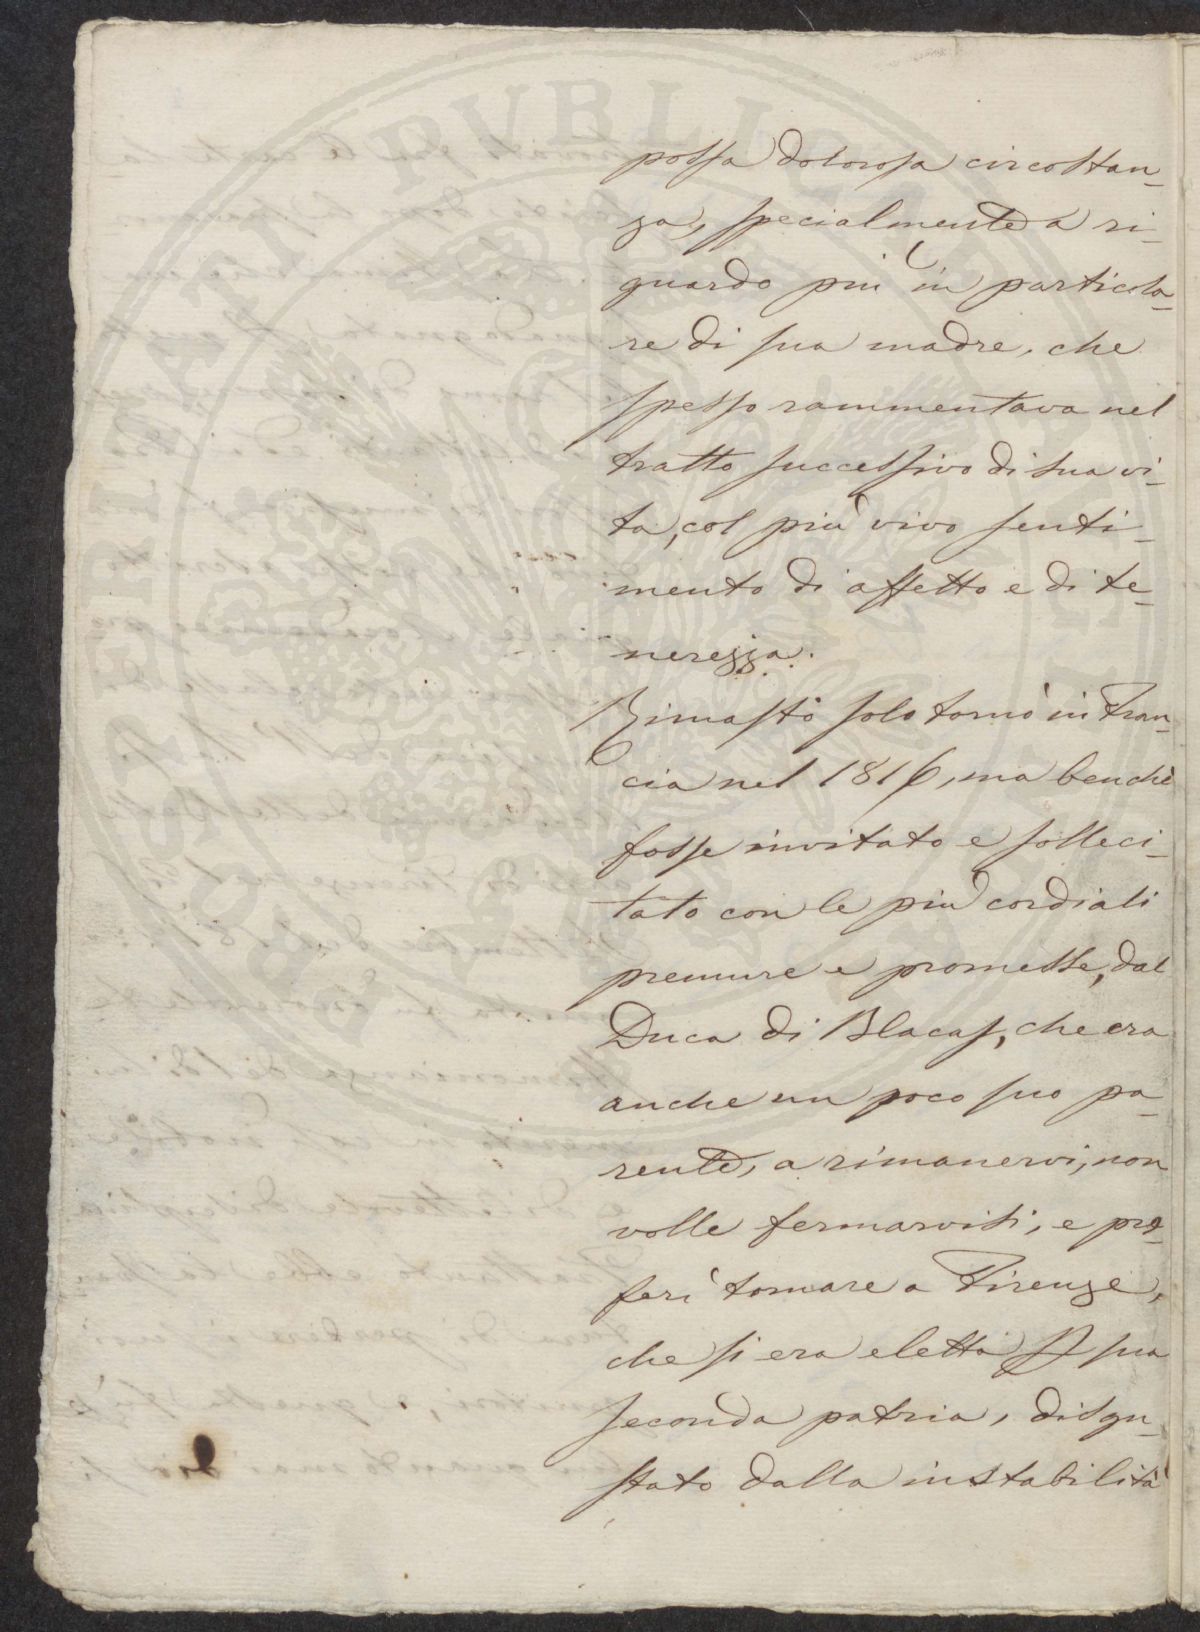 possa dolorosa circostan-
za, specialmente a ri-
guardo più in particola-
re di sua madre, che
spesso rammentava nel
tratto successivo di sua vi-
ta, col più vivo senti-
mento di affetto e di te-
nerezza.
Rimasto solo tornò in Fran-
cia nel 1816, ma benchè
fosse invitato e solleci-
tato con le più cordiali
premure e promesse, dal
Duca di Blacas, che era
anche un poco suo pa-
rente, a rimanervi, non
volle fermarvisi, e pre-
ferì tornare a Firenze,
che si era eletta p sua
seconda patria, disgu-
stato dalla instabilità